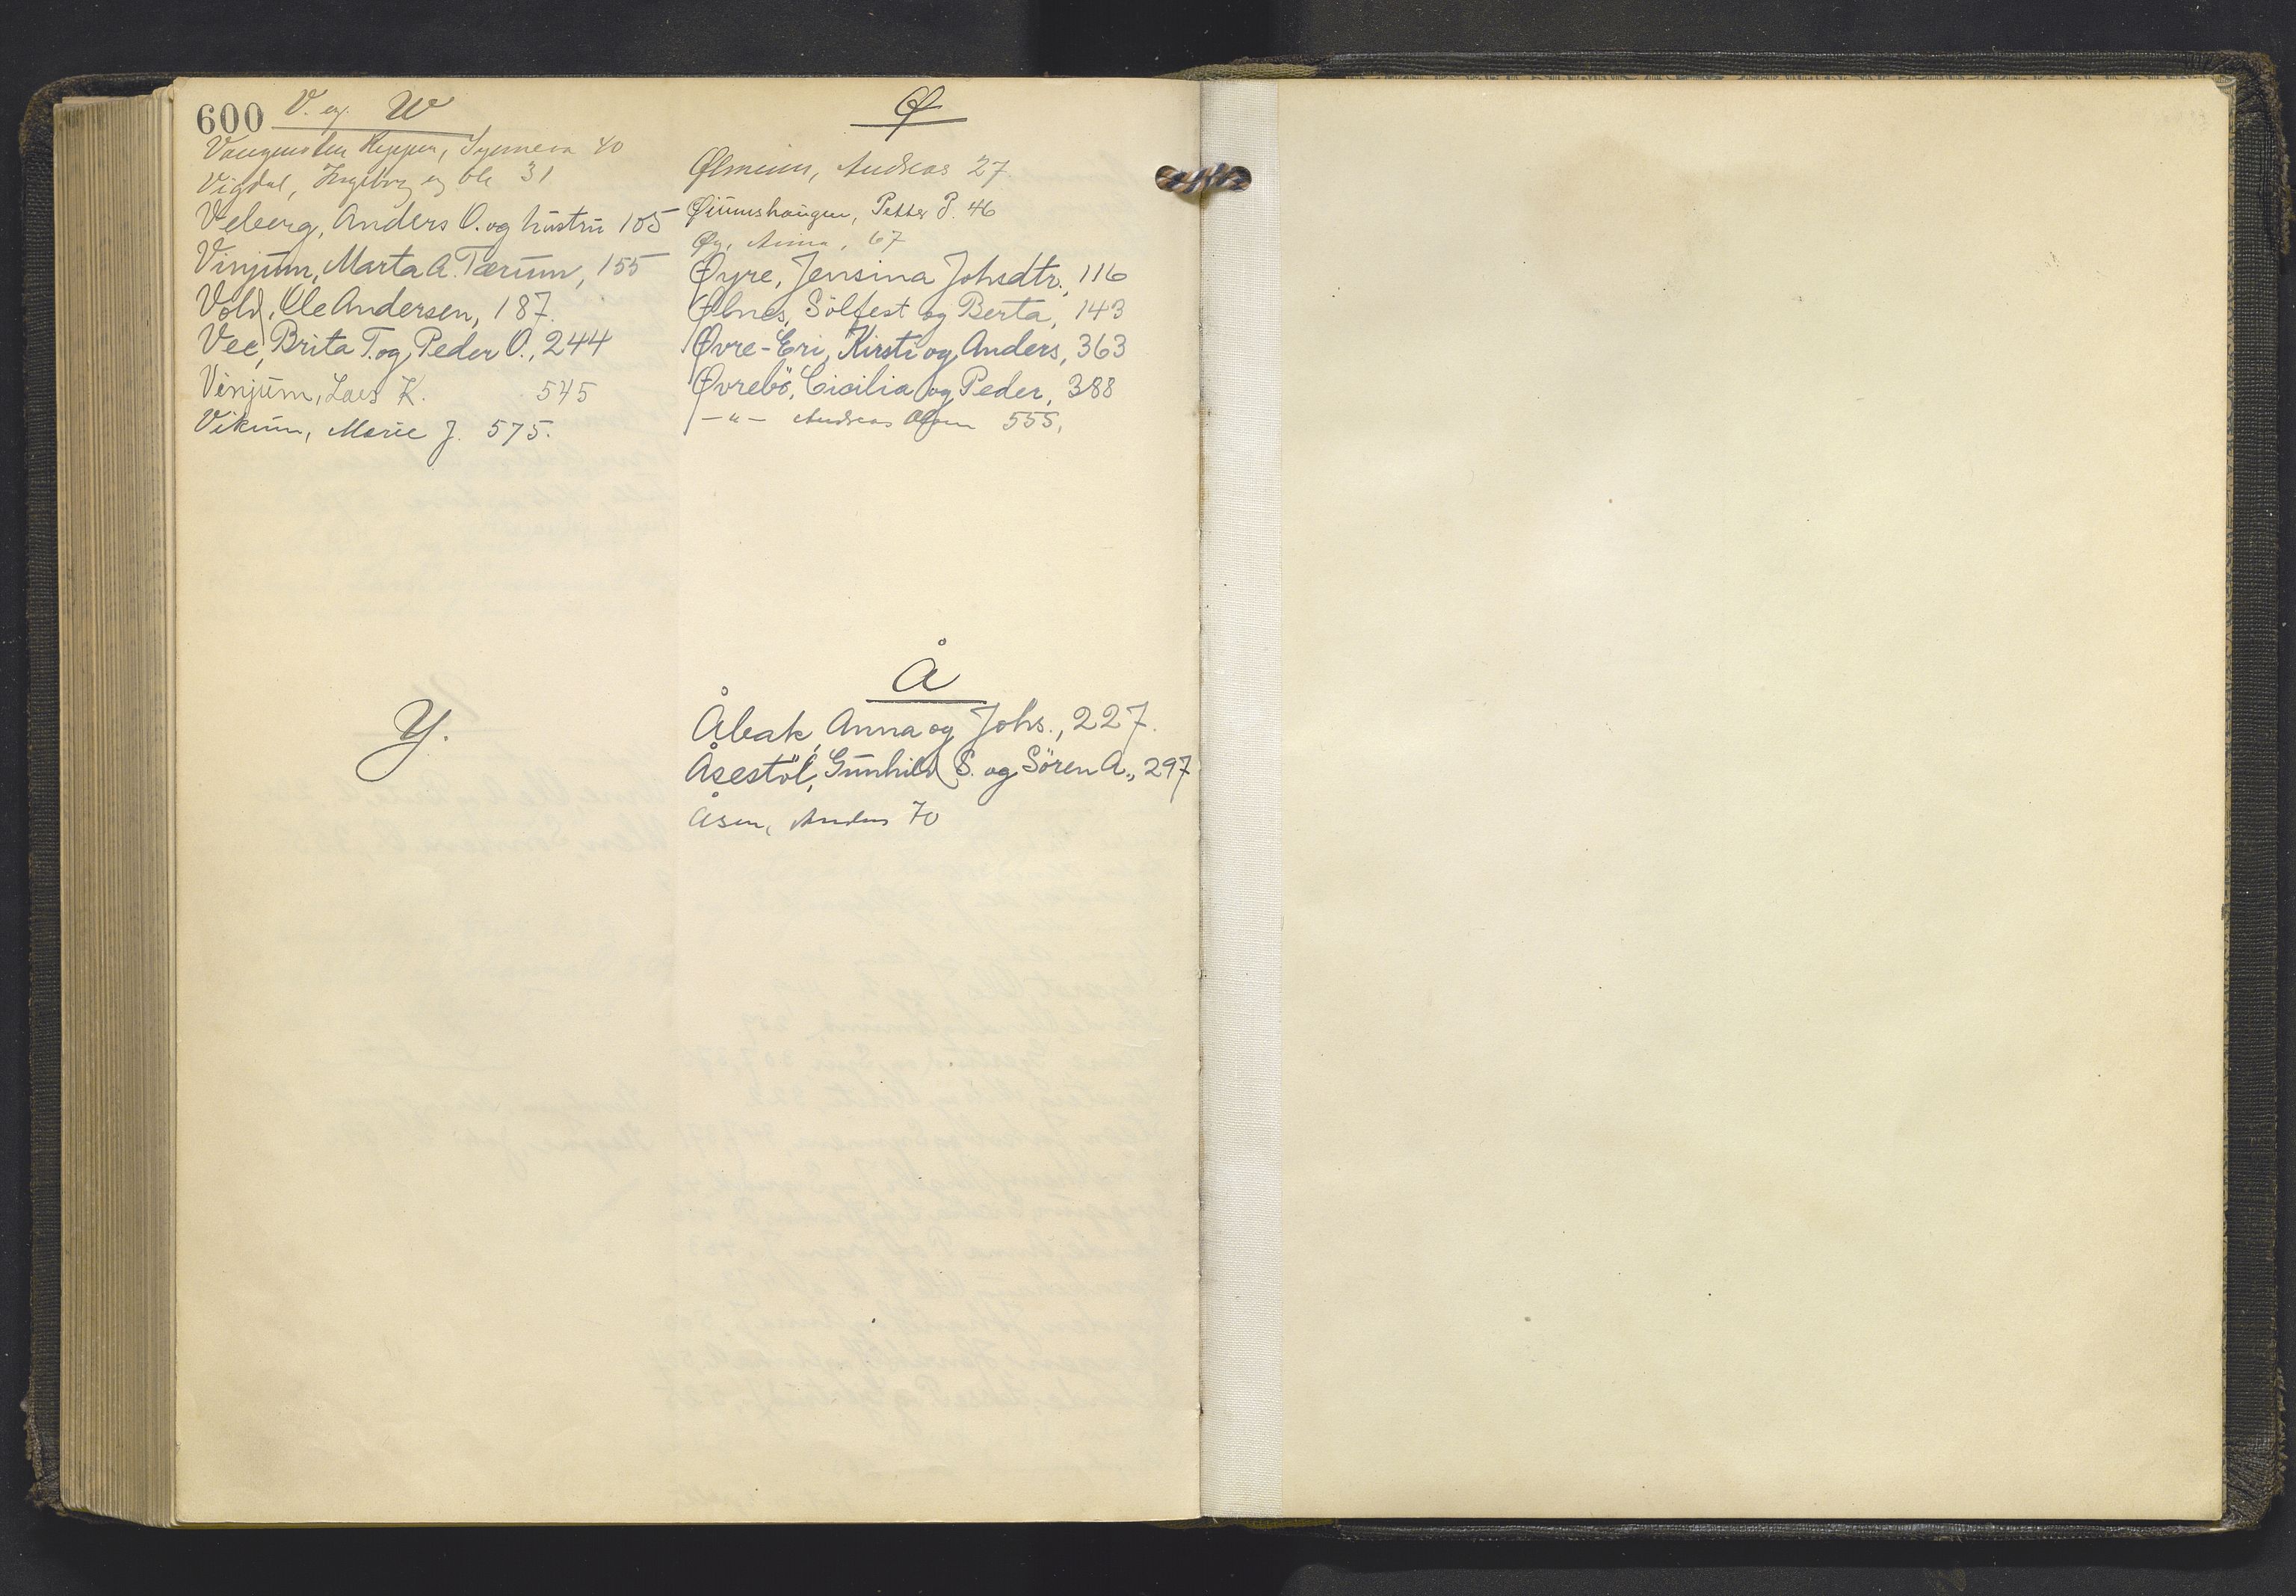 600 V. og W
Vangensten Heggen, Synneva 40
Vigdal, Ingeborg og Ole 31
Veberg, Anders O. og hustru 105
Vinjum, Marta A. Tærum, 155
Vold, Ole Andersen, 187.
Vee, Brita T. og Peder O., 244
Vinjum, Lars K. 545
Vikum, Marie J. 575.
Y.
Ø
Ølmeim, Andreas 27.
Øiumshaugen, Petter P. 46
Øy, Anna, 67
Øyre, Jensina Johsdtr., 116
Ølnes, Sölfest og Berta, 143
Øvre-Eri, Kirsti og Anders, 363
Øvrebö, Cicilia og Peder, 388
-"- Andreas Olsen 555,
Å
Åbak, Anna og Johs., 227.
Åsestöl, Gunhild S. og Sören A., 297
Åsen, Anders 70